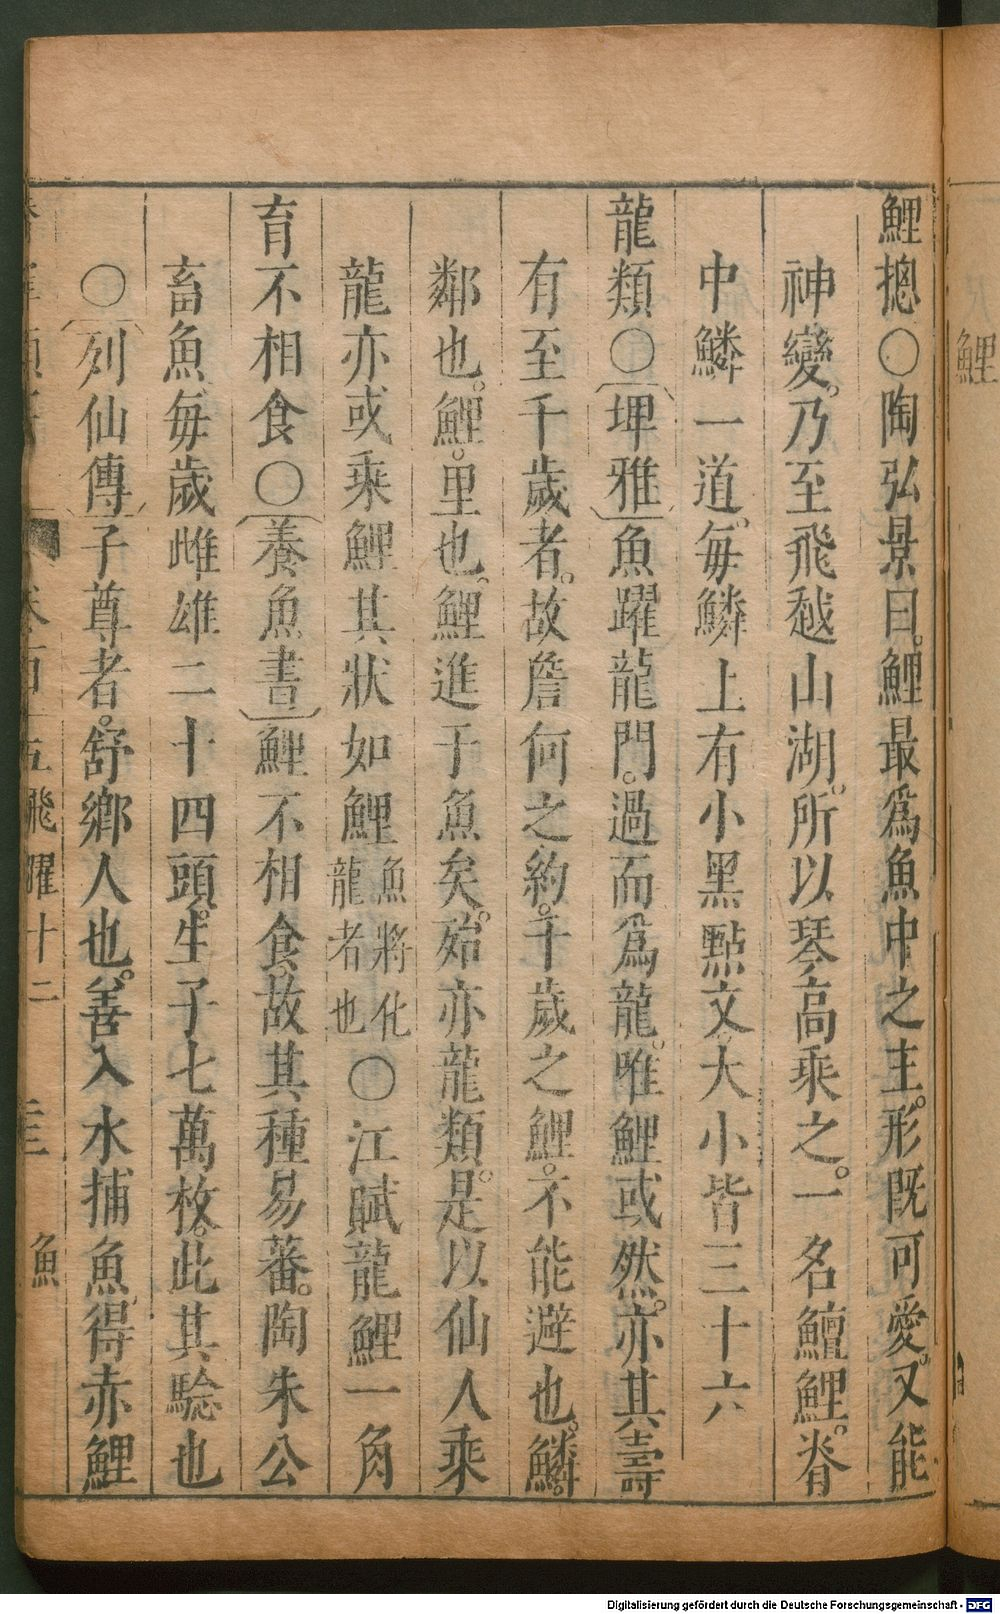 鯉揔〇陶弘景曰。鯉最爲魚中之主。形既可愛。又能
神變。乃至飛越山湖。所以琴高乘之。一名鱣鯉。脊
中鱗一道。每鱗上有小黑點文。大小皆三十六
龍類〇〔埤雅〕魚躍龍門。過而爲龍。唯鯉或然。亦其壽
有至千歲者。故詹何之約。千歲之鯉。不能避也。鱗。
鄰也。鯉。里也。鯉進于魚矣。殆亦龍類。是以仙人乘
龍亦或乘鯉其狀如鯉魚將化龍者也〇江賦龍鯉一角
育不相食〇〔養魚書〕鯉不相食故其種易蕃。陶朱公
畜魚每歲雌雄二十四頭。生子七萬枚。此其騐也
〇〔列仙傳〕子尊者。舒鄉人也。善入水捕魚。得赤鯉
五 飛躍十二 魚
鯉
Digitalisierung gefördert durch die Deutsche Forschungsgemeinschaft - DFG